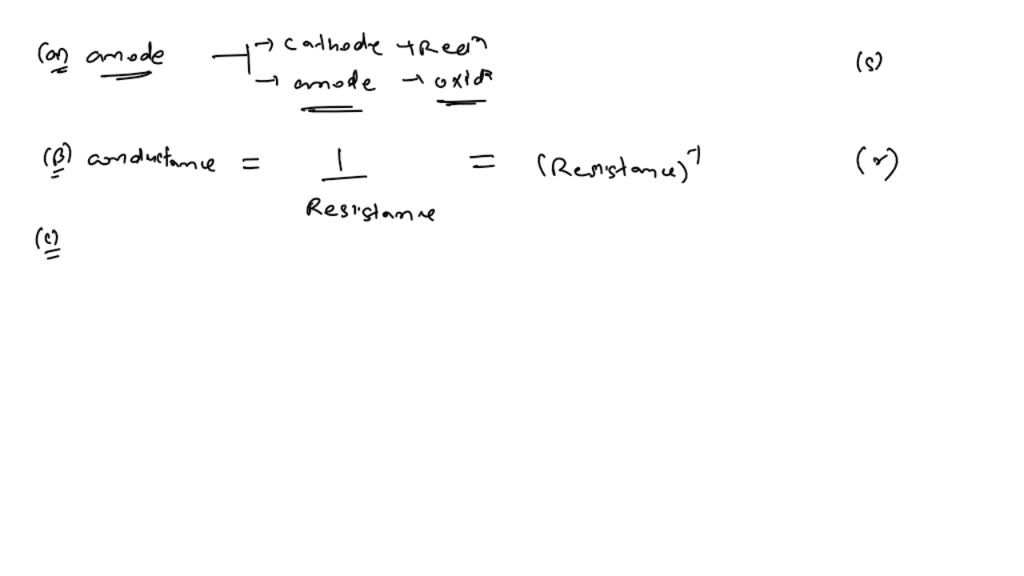 (a) anode → cathode → Redⁿ (s)
→ anode → oxidⁿ
(B) conductance = 1 / Resistance = (Resistance)⁻¹ (r)
(c)